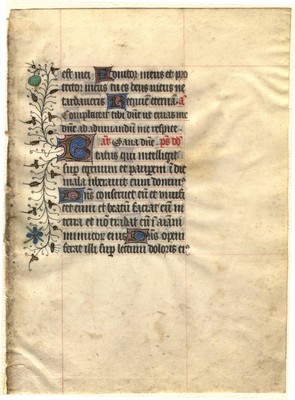 est mei Adiutor meus et pro
tector meus tu es deus meus ne
tardaueris Requiē eternā. a͞
Complaceat tibi dn̄e ut eruas me
dn̄e ad adiuuandū me respice
an̄. Sana dn̄e. ps̄ dd̄
Beatus qui intelligit
sup̄ egenum et pauperē ī die
mala liberauit eum domin9
Dn̄s conseruet eū et uiuifi
cet eum et beatū faciat eū in
terra et nō tradat eū ī aīam
inimicor̄ eius Dn̄s opem
ferat illi sup̄ lectum doloris ei9